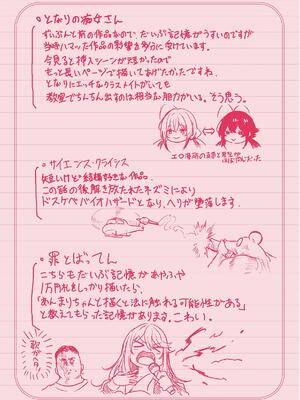 ・となりの痴女さん
ずいぶんと前の作品なので、だいぶ記憶がうすいのですが
当時ハマった作品の影響を多分に受けています。
今見ると挿入シーンが短かったので
もっと長いページで描いてあげたかったですね。
となりにエッチなクラスメイトがいても
教室でちんちん出すのは相当な胆力がいる。そう思う。
・サイエンス・クライシス
短いけど結構好きな作品。
この話の後解き放たれたネズミにより
ドスケベバイオハザードとなり、ヘリが墜落します。
・罪とばってん
こちらもだいぶ記憶があやふや
1万円札をしっかり描いたら、
「あんまりちゃんと描くと法に触れる可能性がある」
と教えてもらった記憶があります。こわい。
歌がヘタ